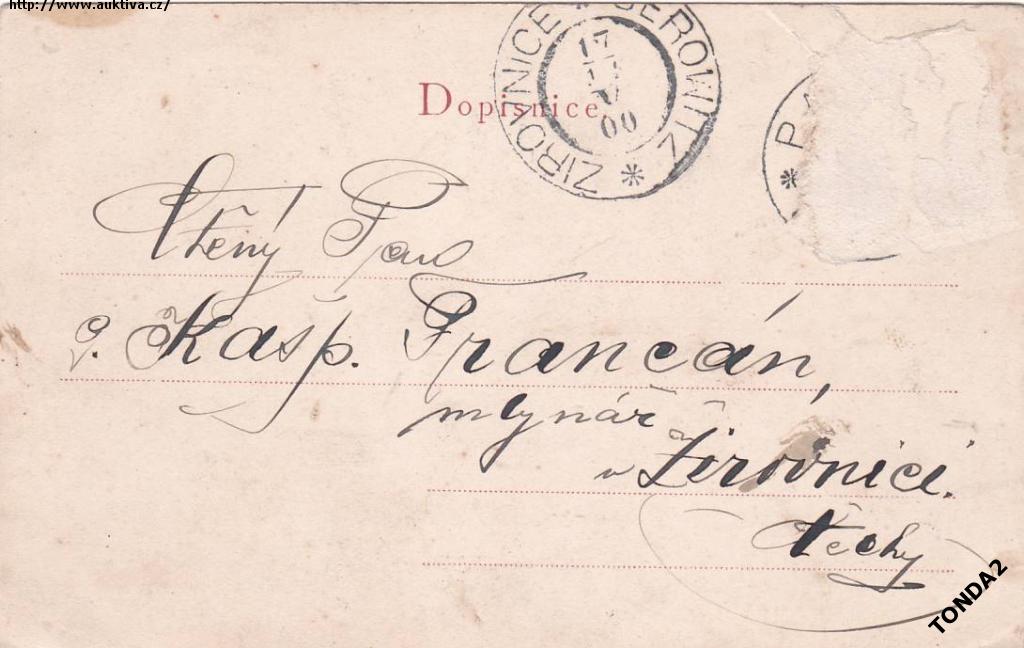 http://www.auktiva.cz/
Dopisnice
ŽIROVNICE * SEROWITZ *
17
00
* PA
Ctěný Pan
p. Kašp. Francán,
mlynář
v Žirovnici.
Čechy
TONDA2